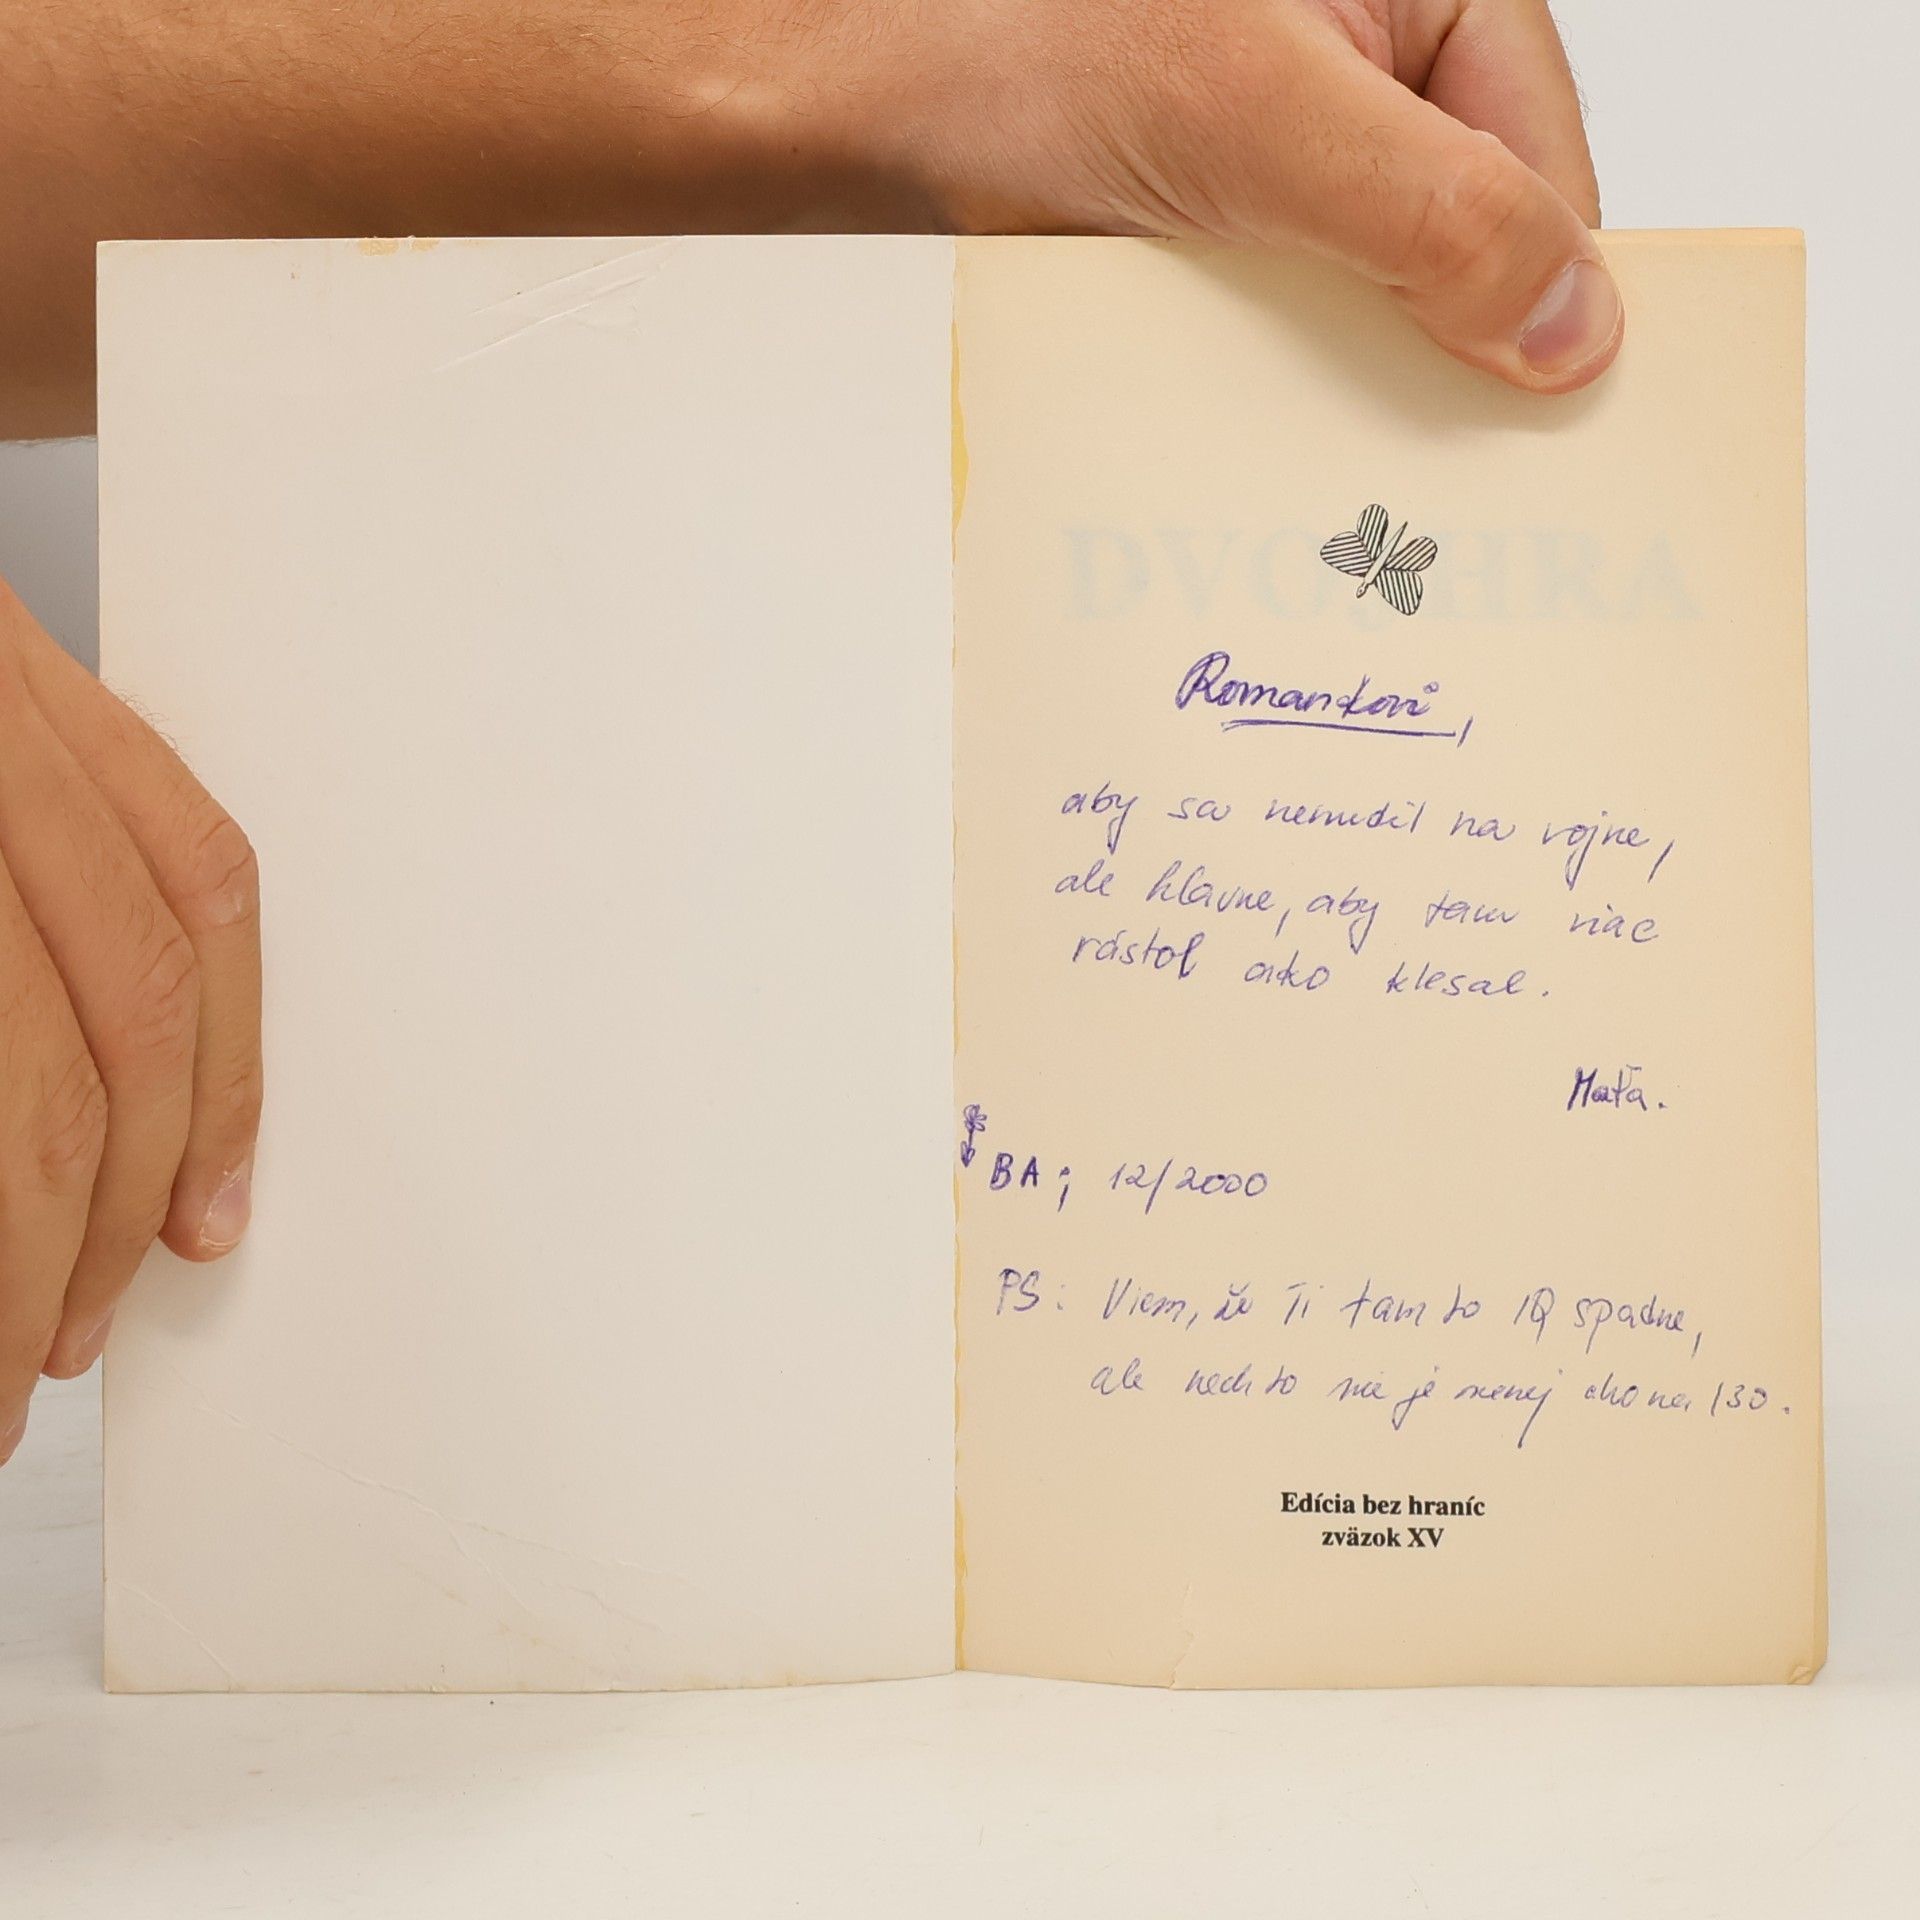 DVOJHRA
Romankovi,
aby sa nenudil na vojne,
ale hlavne, aby tam viac
rástol ako klesal.
Maťa.
BA; 12/2000
PS: Viem, že Ti tam to IQ spadne,
ale nech to nie je menej ako na 130.
Edícia bez hraníc
zväzok XV